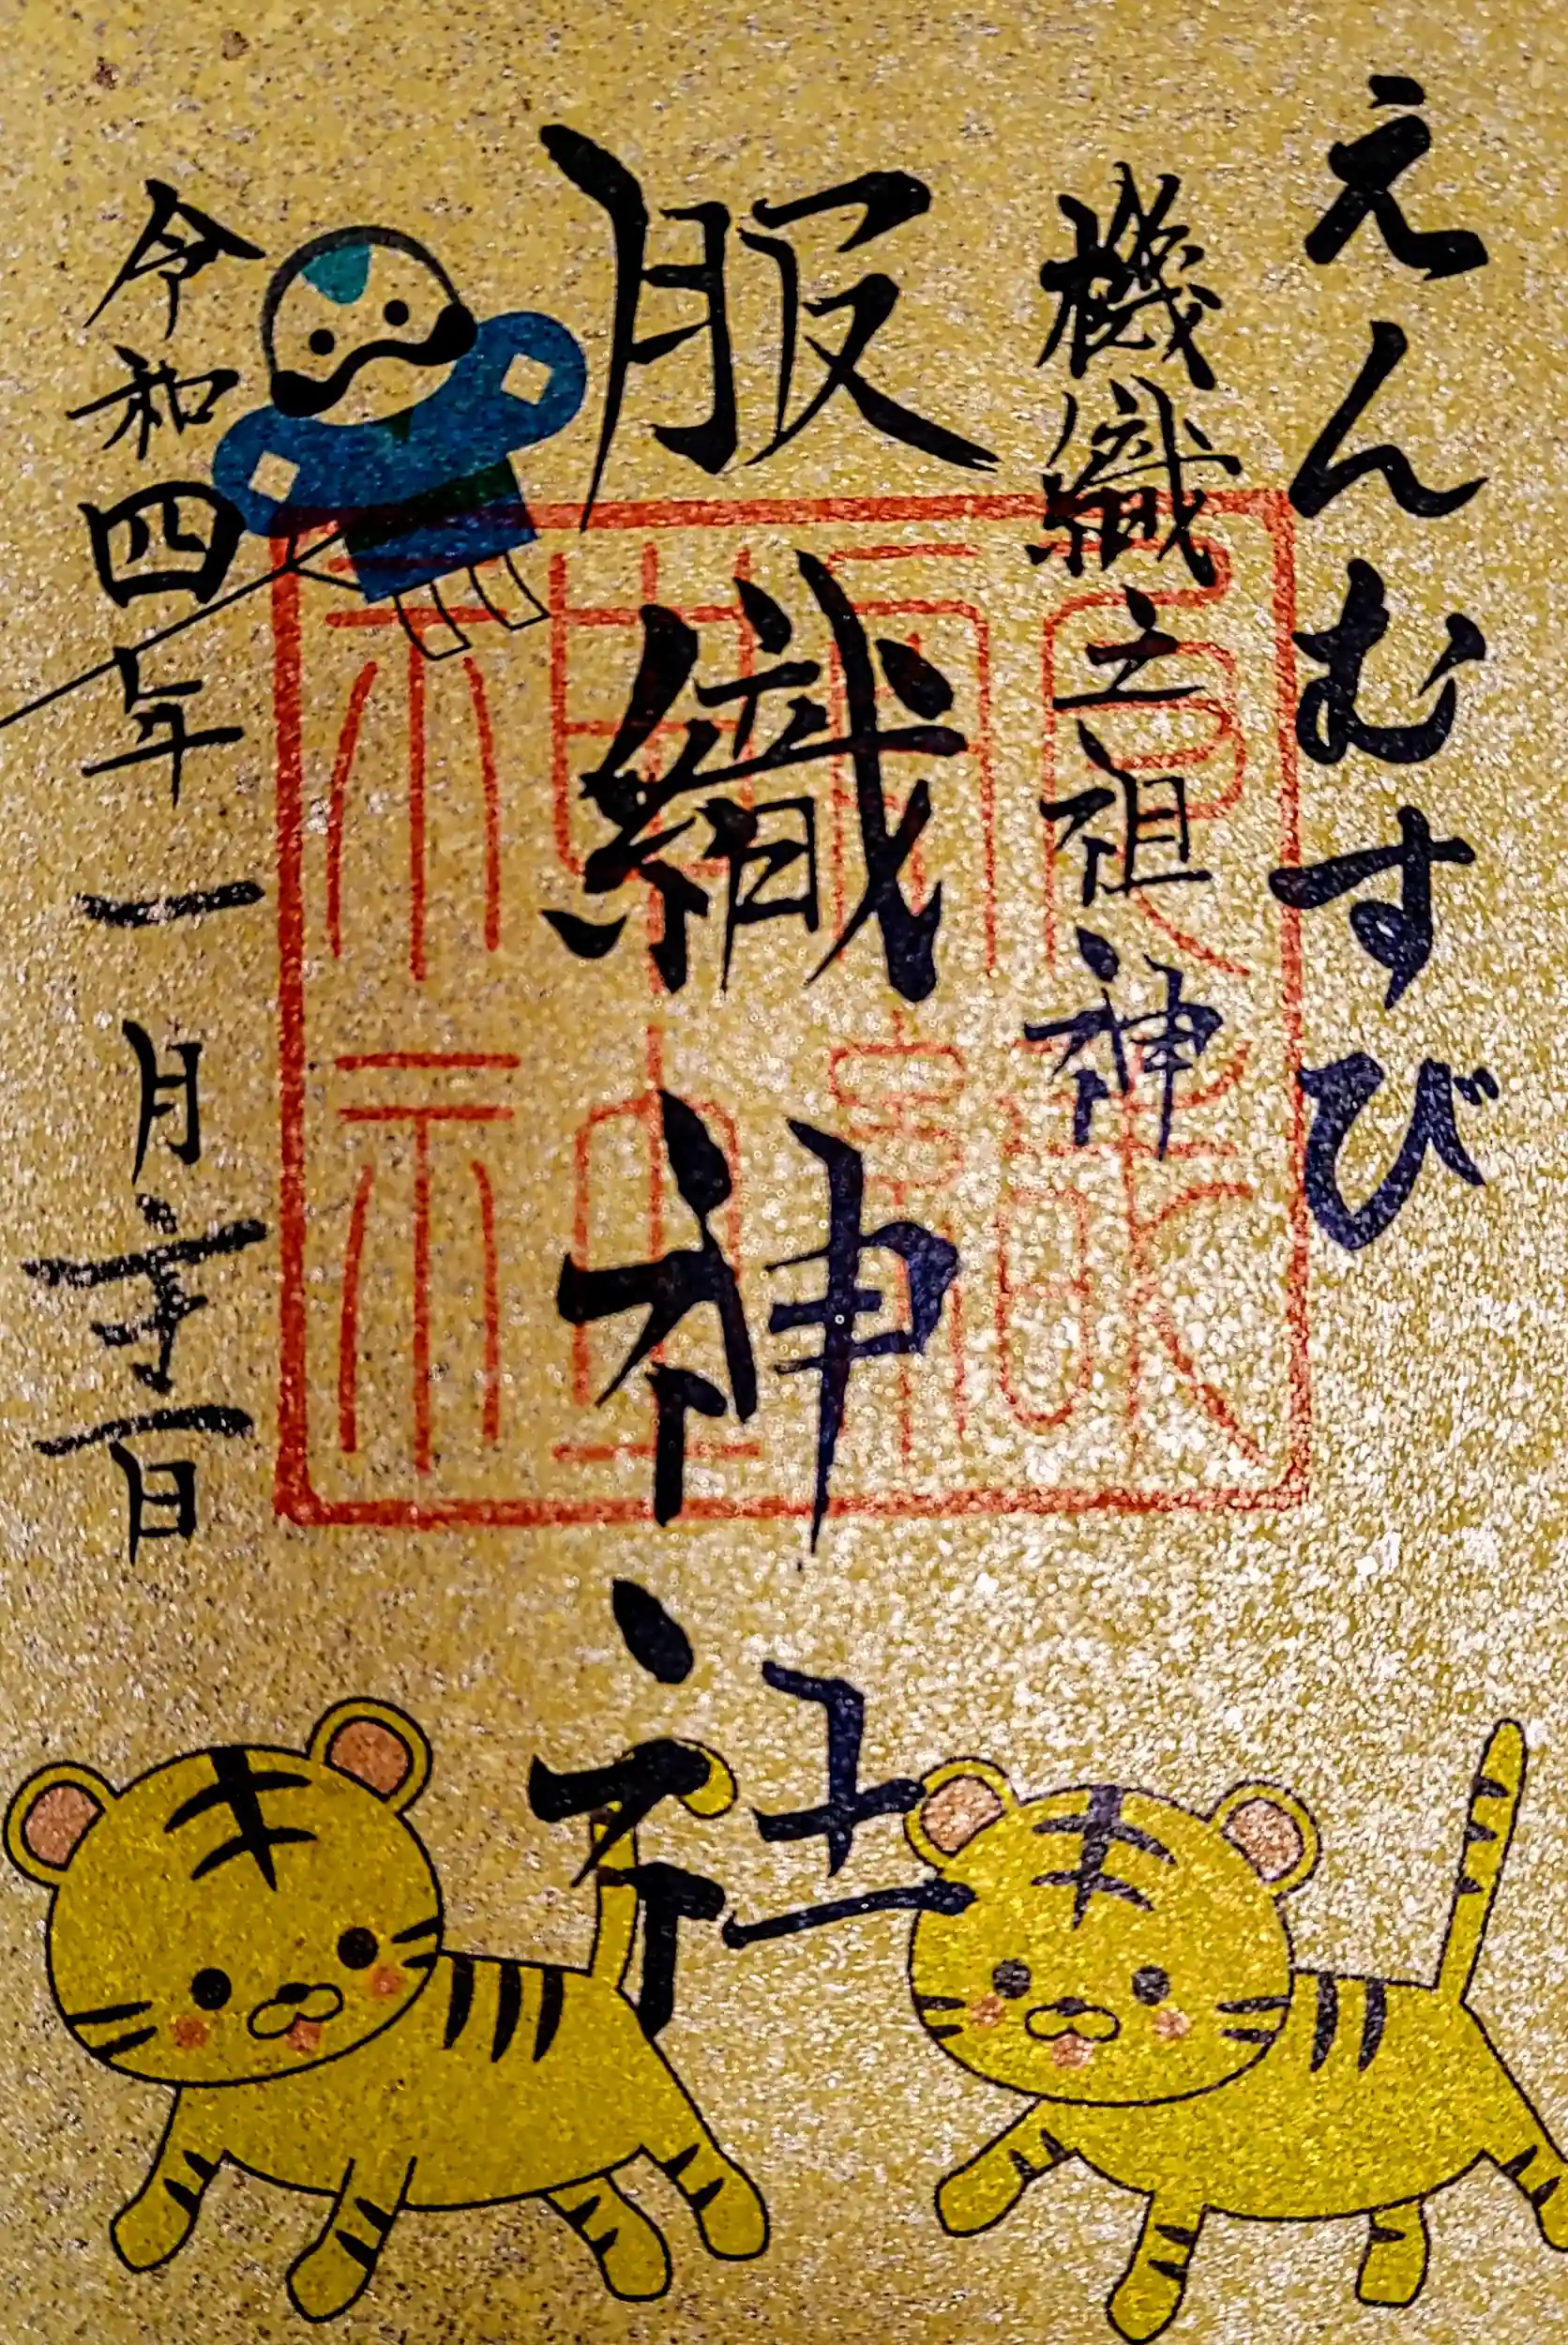 えんむすび
機織之祖神
服織神社
令和四年一月 日